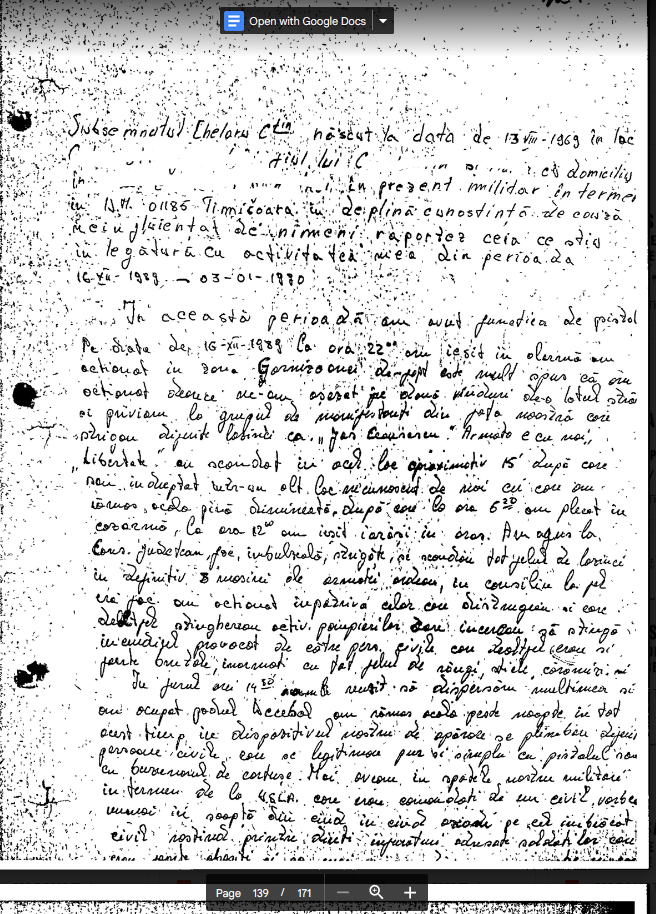 Open with Google Docs
Subsemnatul Chelaru Ctin născut la data de 13 VIII-1969 în loc
fiul lui C cu domiciliu
în în prezent militar în termen
în U.M. 01185 Timișoara în deplină cunoștință de cauză
neinfluențat de nimeni raportez ceia ce știu
în legătură cu activitatea mea din perioada
16-XII-1989 — 03-01-1990
În această perioadă am avut funcția de pistol
Pe data de 16-XII-1989 la ora 22⁰⁰ am ieșit in alarmă am
acționat in zona Garnizoanei este mult spus că am
acționat deoarece ne-am așezat pe două rînduri de-a latul
si priviam la grupul de manifestanti din fața noastră care
strigau diferite lozinci ca "Jos Ceausescu" Armata e cu noi,,
"Libertate" au scandat in acel loc aproximativ 15' după care
s-au indreptat intr-un alt loc necunoscut de noi cu care am
rămas acolo pînă dimineată, după care la ora 6³⁰ am plecat in
cazarmă, la ora 12⁰⁰ am iesit iarăsi in oras. Am ajuns la
Cons. Judetean, foc, imbulzeală, strigăte, si scandau tot felul de lozinci
in definitiv 3 masini ale armatei ardeau, in consiliu la fel
era foc am actionat impotriva celor care distrugeau si care
stinghereau activ. pompierilor care incercau să stingă
incendiul provocat de către pers. civile care deobicei erau si
foarte brutale, inarmati cu tot felul de răngi, sticle, cărămizi
In jurul orei 14³⁰ reusit să dispersăm multimea si
am ocupat podul Decebal am rămas acolo peste noapte in tot
acest timp in dispozitivul nostru de apărare se plimbau
persoane civile care se legitimau pur si simplu cu pistolul sau
cu buzunarul de cartuse. Mai aveam in spatele nostru militari
in termen de la U.S.L.A. care erau comandati de un civil, vorbea
numai in soaptă din cînd in cînd pe cel imbrăcat
civil rostind printre dinti injurături adresate soldatilor care
Page 139 / 171